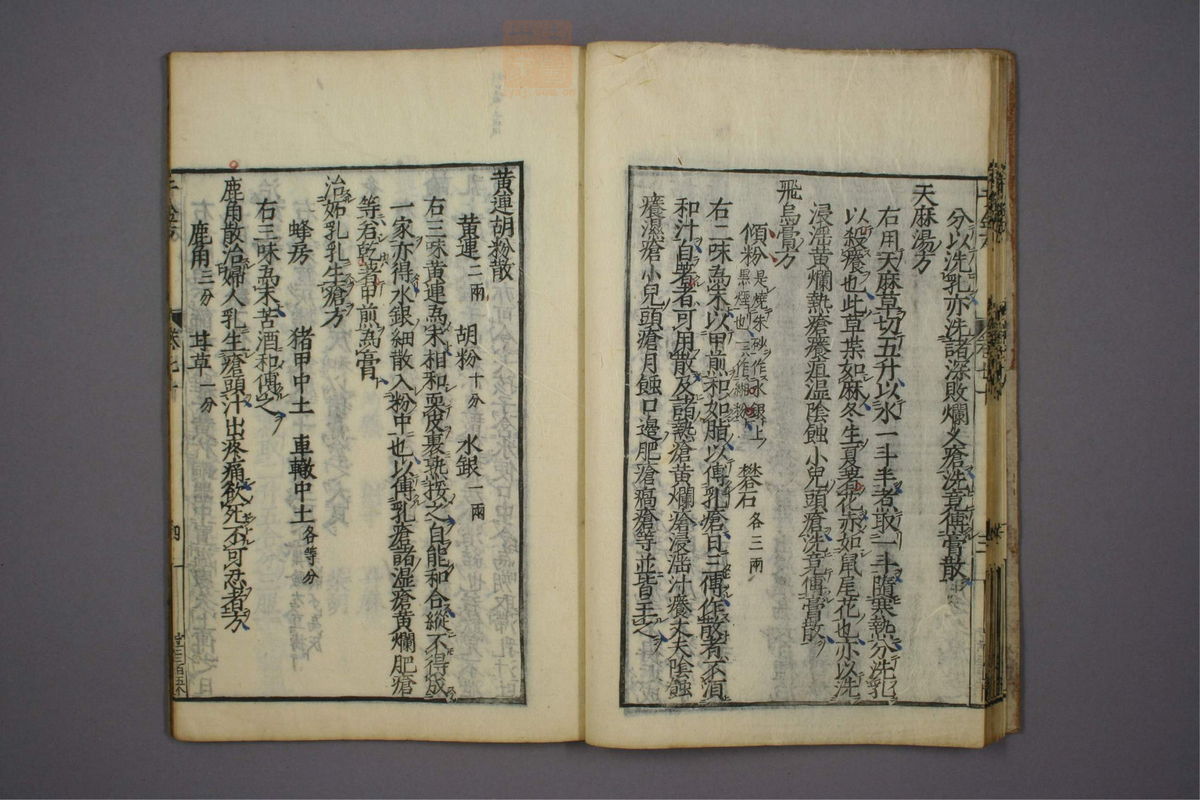 分以洗乳亦洗諸深敗爛久瘡洗竟傅膏散
天麻湯方
右用天麻草切五升以水一斗半煮取一斗隨寒熱分洗乳
以殺癢也此草葉如麻冬生夏著花赤如鼠尾花也亦以洗
浸淫黄爛熱瘡癢疽温陰蝕小兒頭瘡洗竟傅膏散
飛烏膏方
傾粉 是燒朱砂作水銀上黒煙也一作湘粉 礬石 各三兩
右二味為末以甲煎和如脂以傅乳瘡日三傅作散者不須
和汁自著者可用散及諸熱瘡黄爛瘡浸淫汁癢丈夫陰蝕
癢濕瘡小兒頭瘡月蝕口邊肥瘡瘑瘡等並皆主之
黄連胡粉散
黄連 二兩 胡粉 十分 水銀 一兩
右三味黄連為末相和皮裹熟挼之自能和合縱不得成
一家亦得水銀細散入粉中也以傅乳瘡諸湿瘡黄爛肥瘡
等若乾著甲煎為膏
治妬乳乳生瘡方
蜂房 猪甲中土 車轍中土 各等分
右三味為末苦酒和傅之
鹿角散治婦人乳生瘡頭汁出疼痛欲死不可忍者方
鹿角 三分 甘草 一分
卷七
四